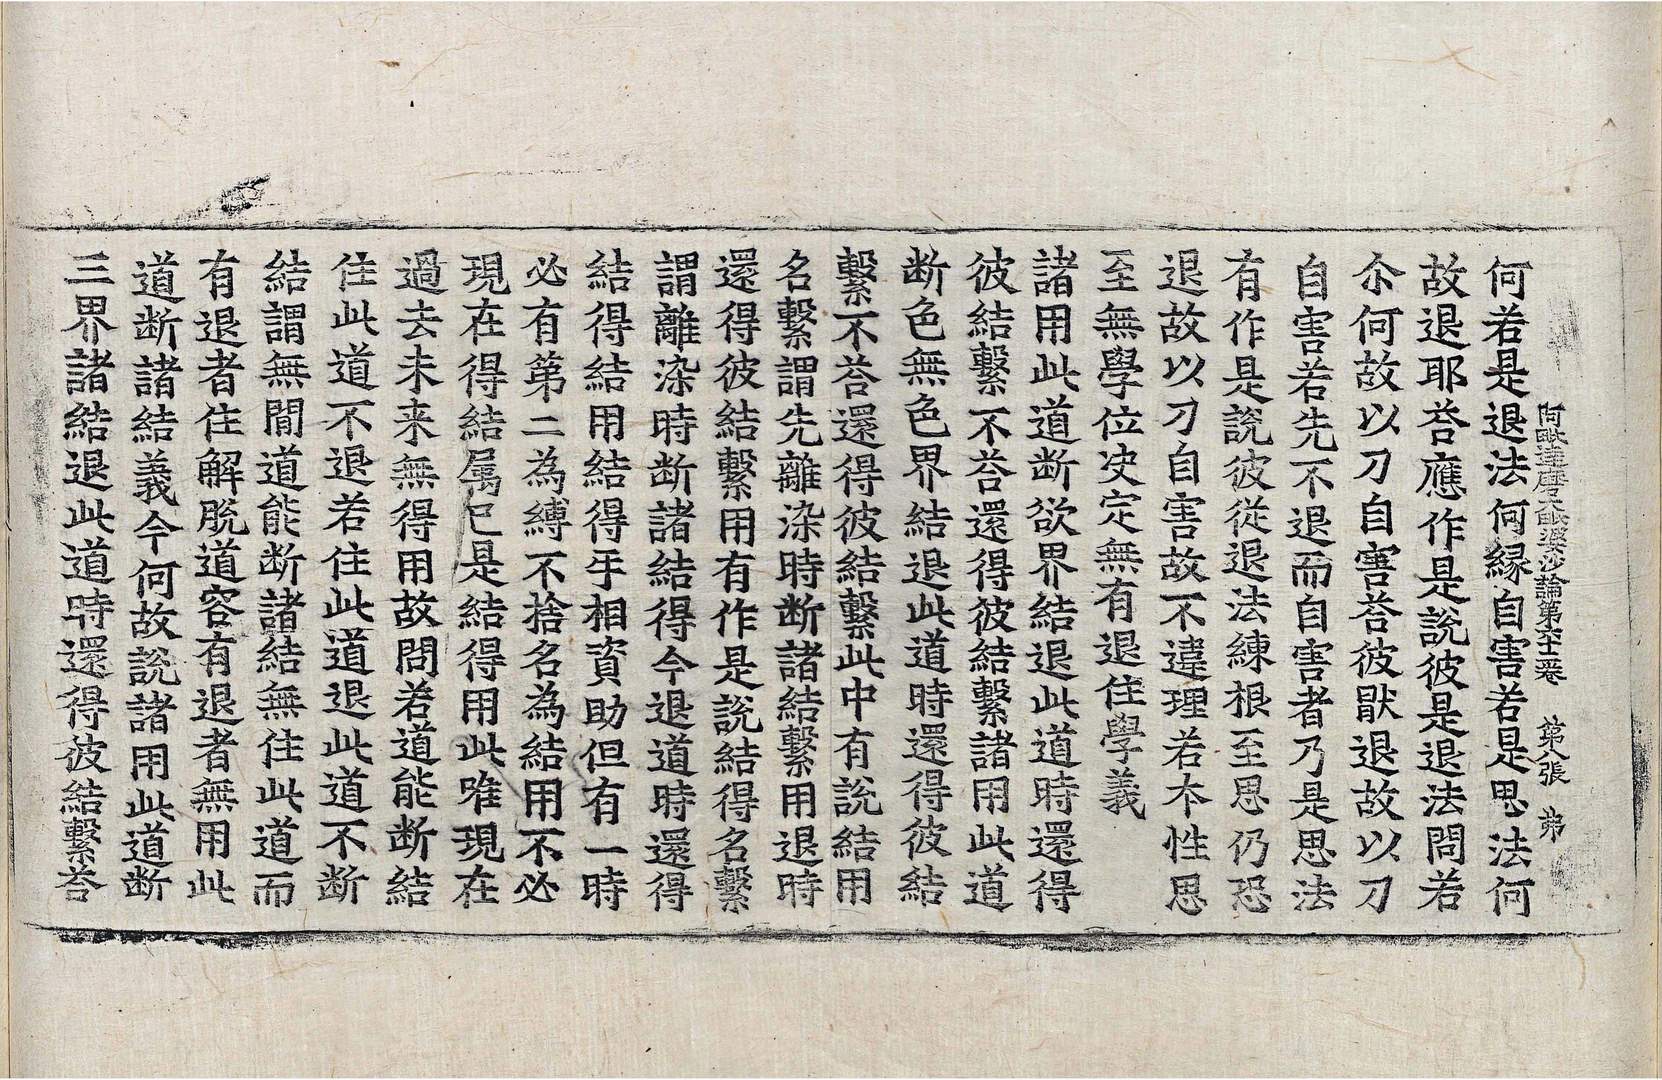 阿毗達磨大毗婆沙論第六十二卷　第八張　弟
何若是退法何縁自害若是思法何
故退耶荅應作是說彼是退法問若
尒何故以刀自害荅彼猒退故以刀
自害若先不退而自害者乃是思法
有作是說彼從退法練根至思仍恐
退故以刀自害故不違理若本性思
至無學位决定無有退住學義
諸用此道断欲界結退此道時還得
彼結繫不荅還得彼結繫諸用此道
断色無色界結退此道時還得彼結
繫不荅還得彼結繫此中有說結用
名繫謂先離染時断諸結繫用退時
還得彼結繫用有作是說結得名繫
謂離染時断諸結得今退道時還得
結得結用結得乎相資助但有一時
必有第二為縛不捨名為結用不必
現在得結属已是結得用此唯現在
過去未来無得用故問若道能断結
住此道不退若住此道退此道不断
結謂無間道能断諸結無住此道而
有退者住解脱道容有退者無用此
道断諸結義今何故說諸用此道断
三界諸結退此道時還得彼結繫荅